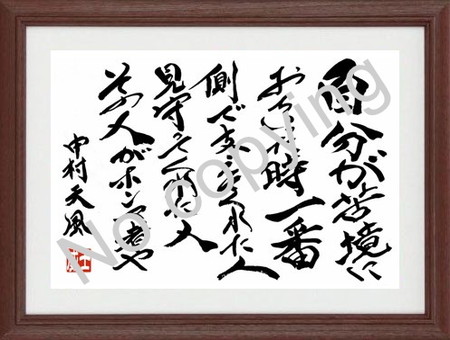 自分が苦境に
おちいった時一番
側で支えてくれた人
見守ってくれた人
その人がホンマ者や
中村天風
No copying